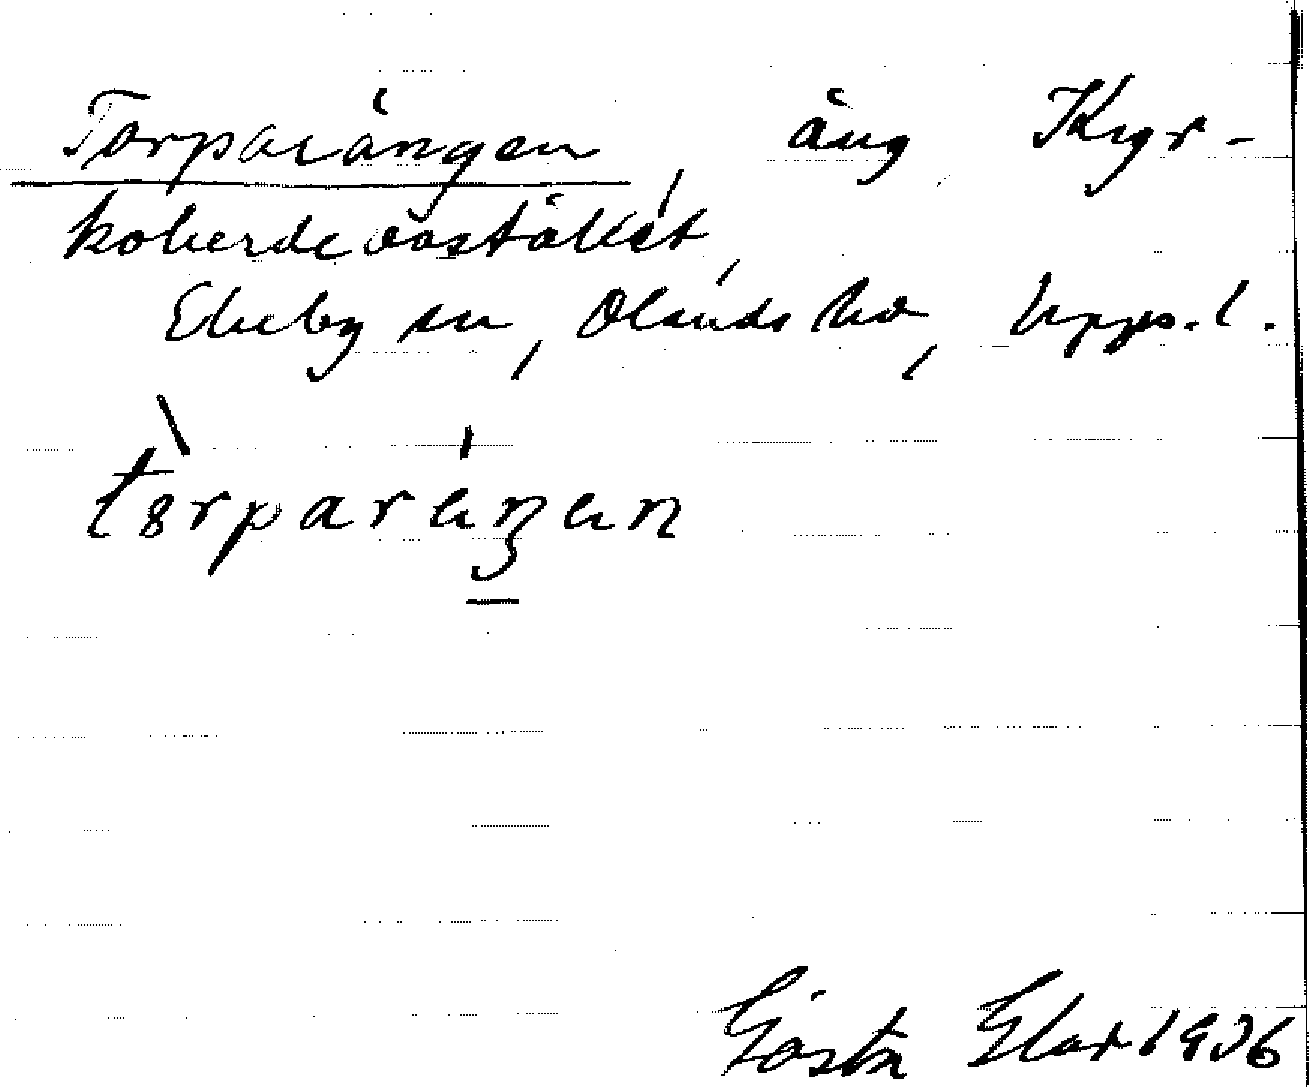 Torparängen, äng Kyr-
koherdebostället,
Ekeby sn, Olands hd, Upps. l.
Gösta Elar 1936